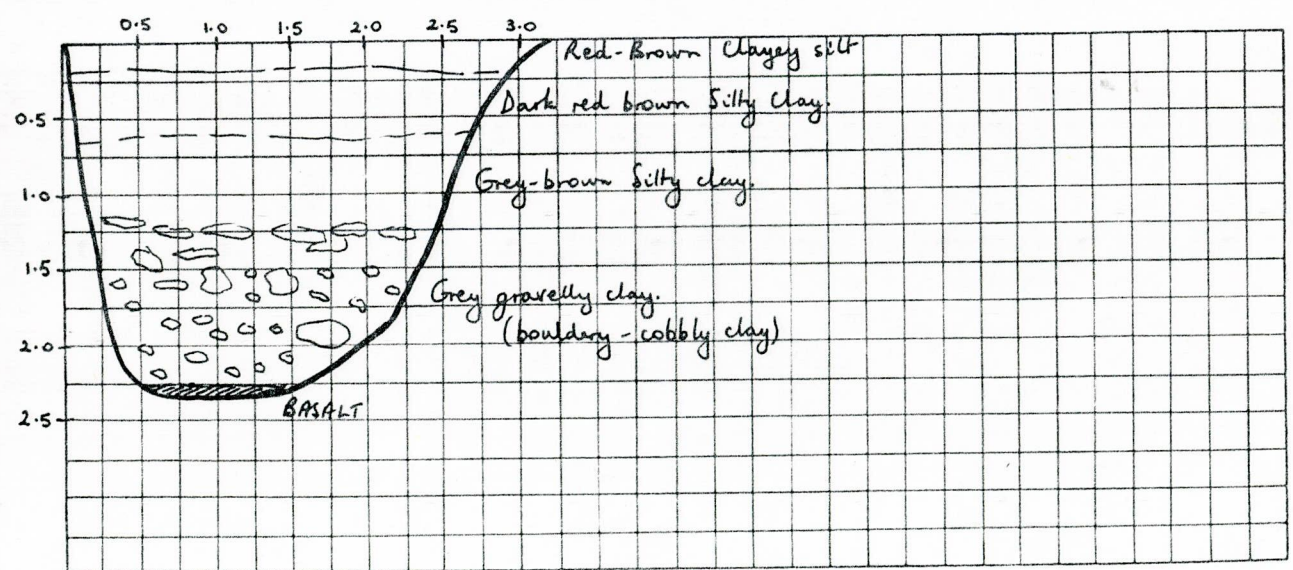 0.5 1.0 1.5 2.0 2.5 3.0
Red-Brown Clayey silt
Dark red brown Silty Clay.
0.5
Grey-brown Silty clay.
1.0
1.5
Grey gravelly clay.
(bouldery - cobbly clay)
2.0
BASALT
2.5